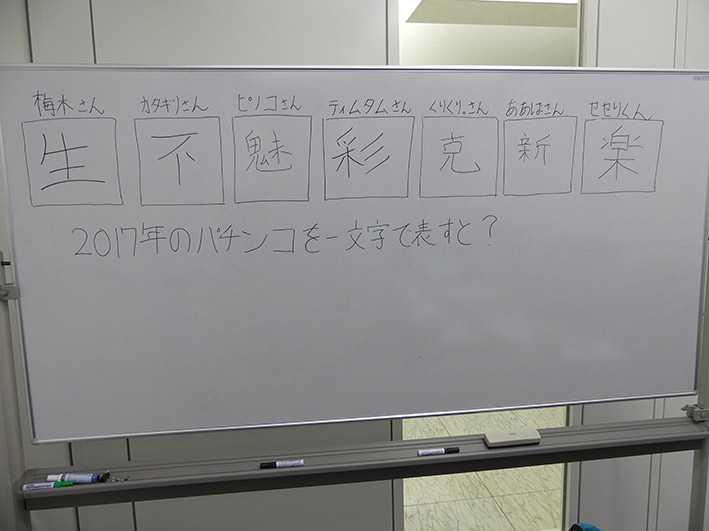 梅木さん カタギリさん ピリコさん ティムタムさん くりくり。さん ああはさん せせりくん
生 不 魅 彩 克 新 楽
2017年のパチンコを一文字で表すと？